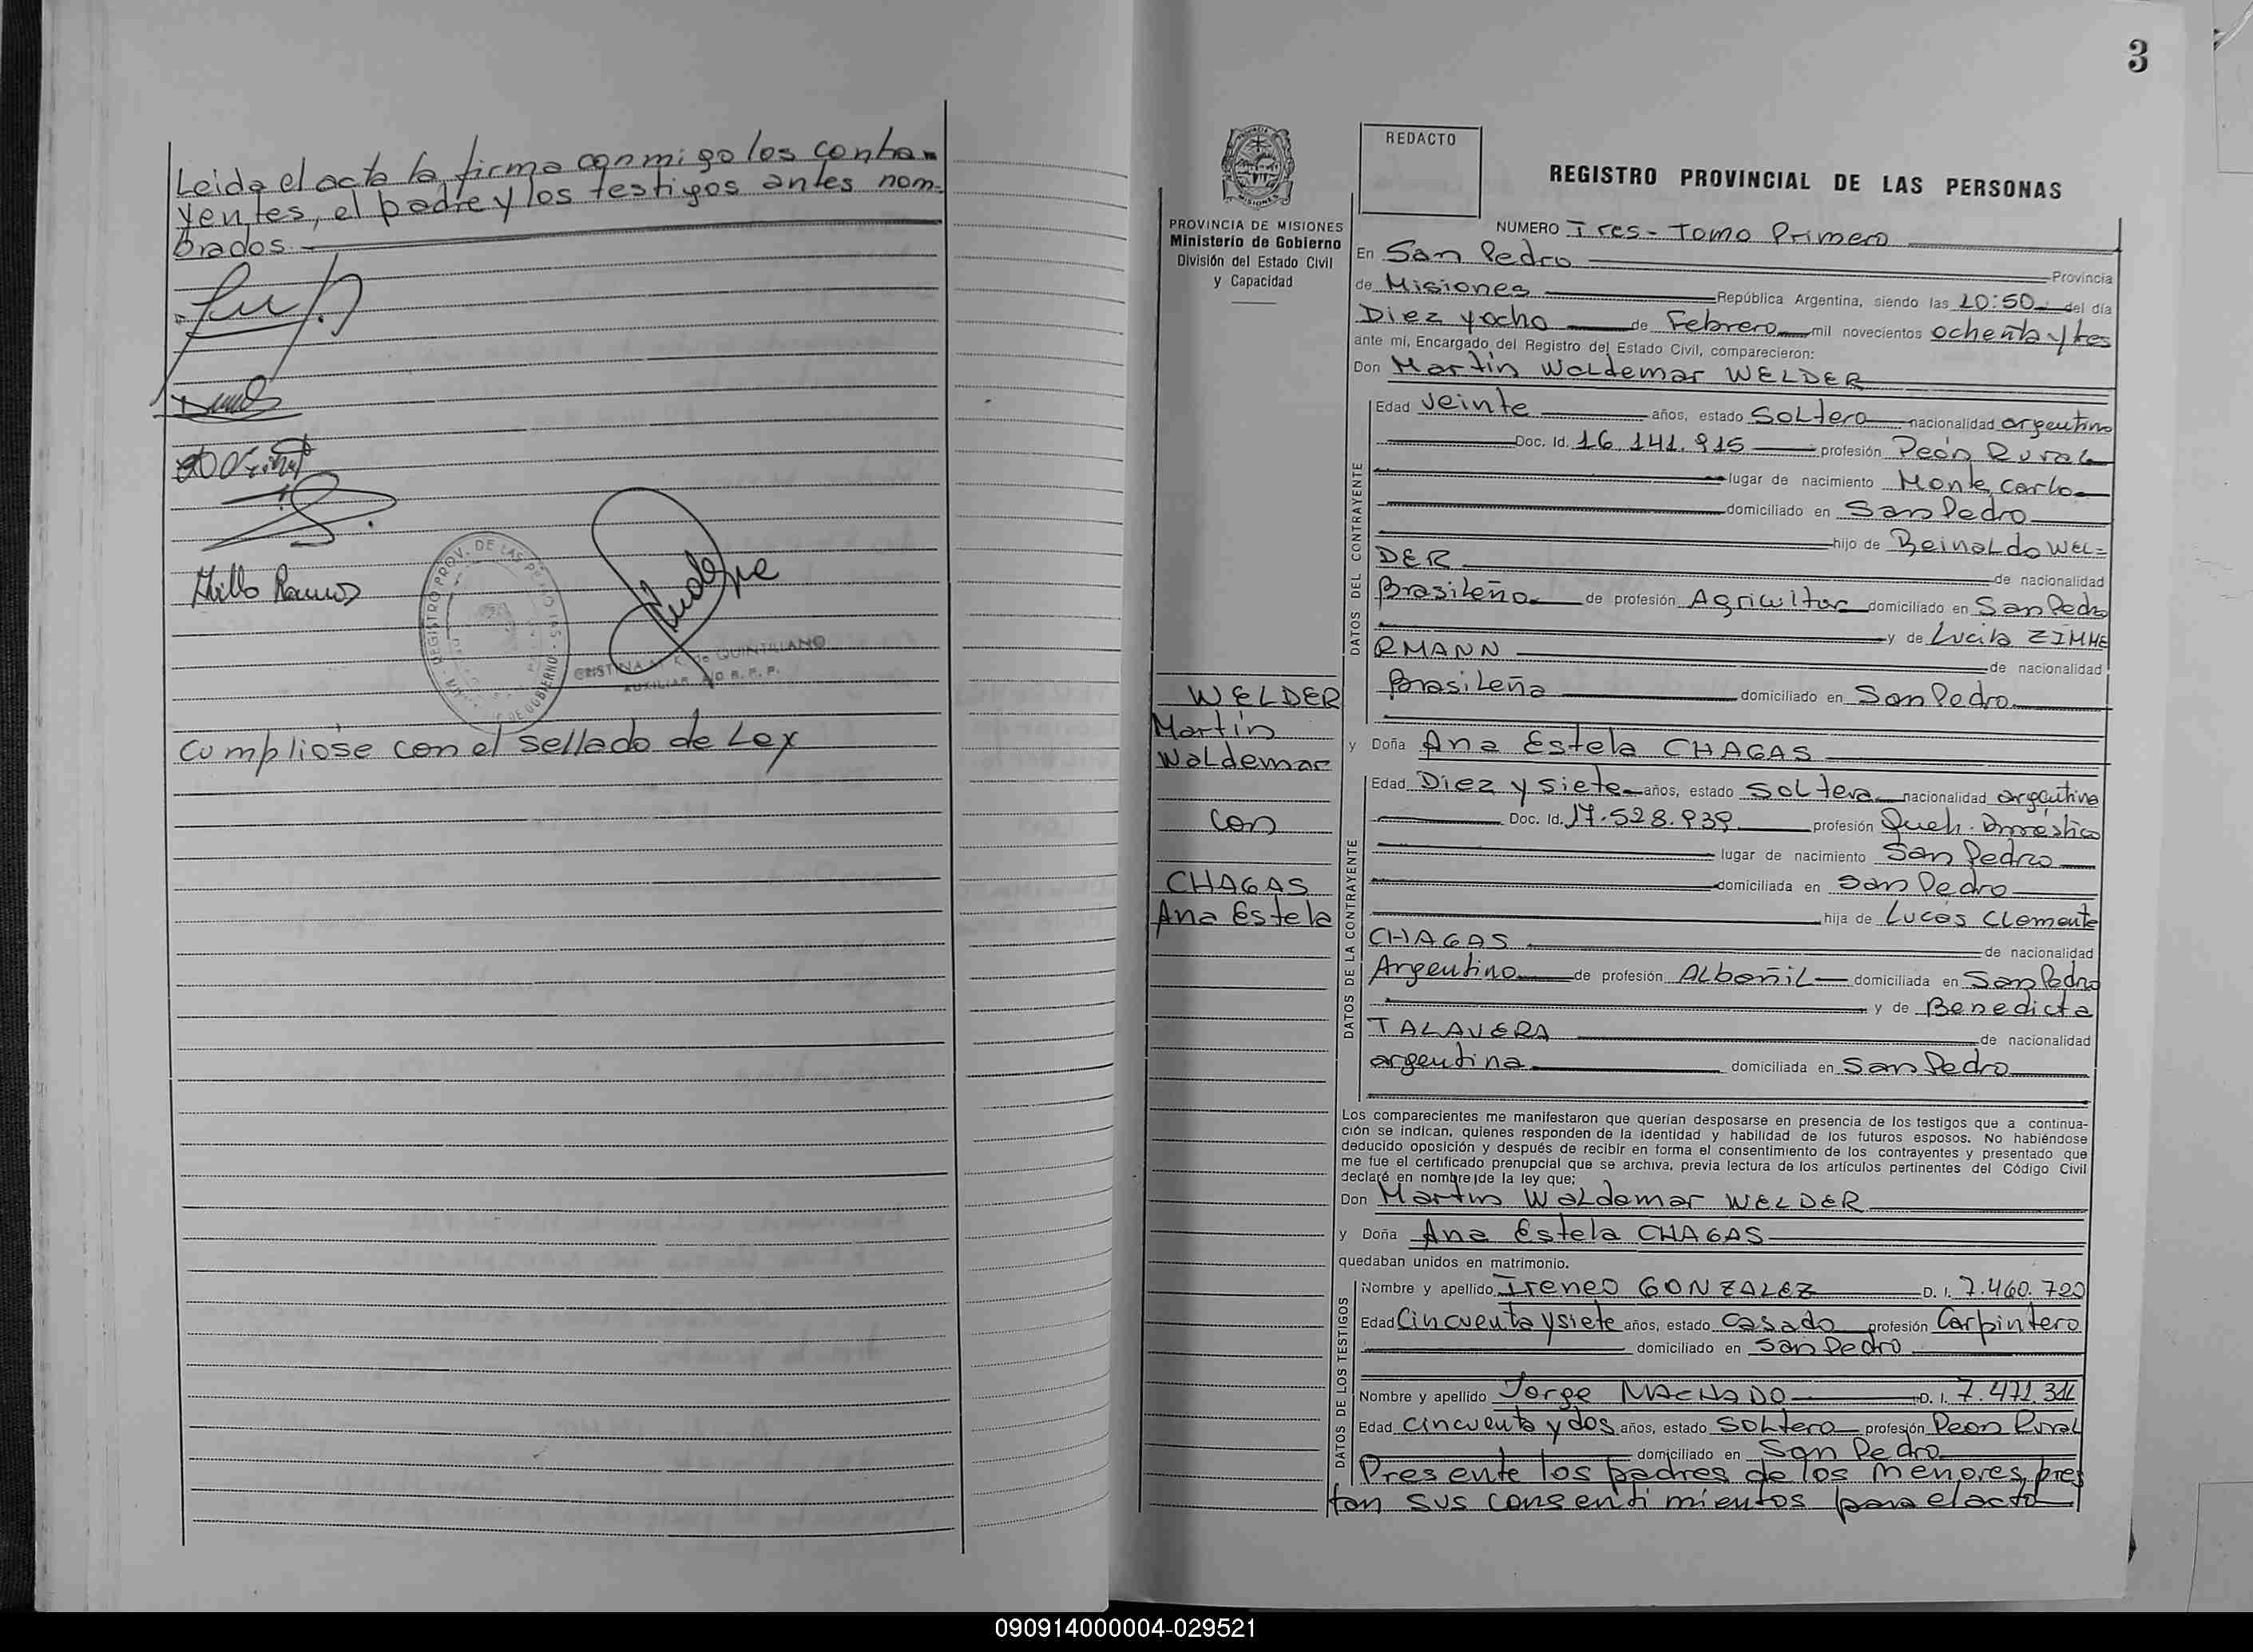 Leida el acta la firma conmigo los contra-
yentes, el padre y los testigos antes nom-
brados.
Ramos
REGISTRO PROV. DE LAS
DE GOBIERNO
CRISTINA K. de QUINTILLANO
AUXILIAR R. P. P.
Cumpliose con el sellado de Ley
3
REDACTO
REGISTRO PROVINCIAL DE LAS PERSONAS
MISIONES
PROVINCIA DE MISIONES
Ministerio de Gobierno
División del Estado Civil
y Capacidad
NUMERO Tres - Tomo Primero
En San Pedro Provincia
de Misiones República Argentina, siendo las 10:50 del día
Diez y ocho de Febrero mil novecientos ochenta y tres
ante mí, Encargado del Registro del Estado Civil, comparecieron:
Don Martín Waldemar WELDER
DATOS DEL CONTRAYENTE
Edad veinte años, estado Soltero nacionalidad argentino
Doc. Id. 16.141.915 profesión Peón Rural
lugar de nacimiento Monte Carlo
domiciliado en San Pedro
hijo de Reinaldo WEL=
DER de nacionalidad
Brasileño de profesión Agricultor domiciliado en San Pedro
y de Lucila ZIMME
RMANN de nacionalidad
Brasileña domiciliado en San Pedro
WELDER
Martín
Waldemar
con
CHAGAS
Ana Estela
y Doña Ana Estela CHAGAS
DATOS DE LA CONTRAYENTE
Edad Diez y siete años, estado Soltera nacionalidad argentina
Doc. Id. 17.528.939 profesión Queh. Doméstico
lugar de nacimiento San Pedro
domiciliada en San Pedro
hija de Lucas Clemente
CHAGAS de nacionalidad
Argentino de profesión Albañil domiciliada en San Pedro
y de Benedicta
TALAVERA de nacionalidad
argentina domiciliada en San Pedro
Los comparecientes me manifestaron que querían desposarse en presencia de los testigos que a continua-
ción se indican, quienes responden de la identidad y habilidad de los futuros esposos. No habiéndose
deducido oposición y después de recibir en forma el consentimiento de los contrayentes y presentado que
me fue el certificado prenupcial que se archiva, previa lectura de los artículos pertinentes del Código Civil
declaré en nombre de la ley que:
Don Martin Waldemar WELDER
y Doña Ana Estela CHAGAS
quedaban unidos en matrimonio.
DATOS DE LOS TESTIGOS
Nombre y apellido Ireneo GONZALEZ D. I. 7.460.720
Edad Cincuenta y siete años, estado Casado profesión Carpintero
domiciliado en San Pedro
Nombre y apellido Jorge MACHADO D. I. 7.471.316
Edad cincuenta y dos años, estado Soltero profesión Peon Rural
domiciliado en San Pedro
Presente los padres de los menores, pres
tan sus consentimientos para el acto
090914000004-029521